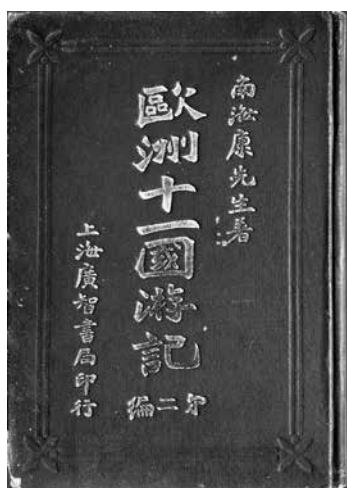 南海康先生著
歐洲十一國游記
第二編
上海廣智書局印行